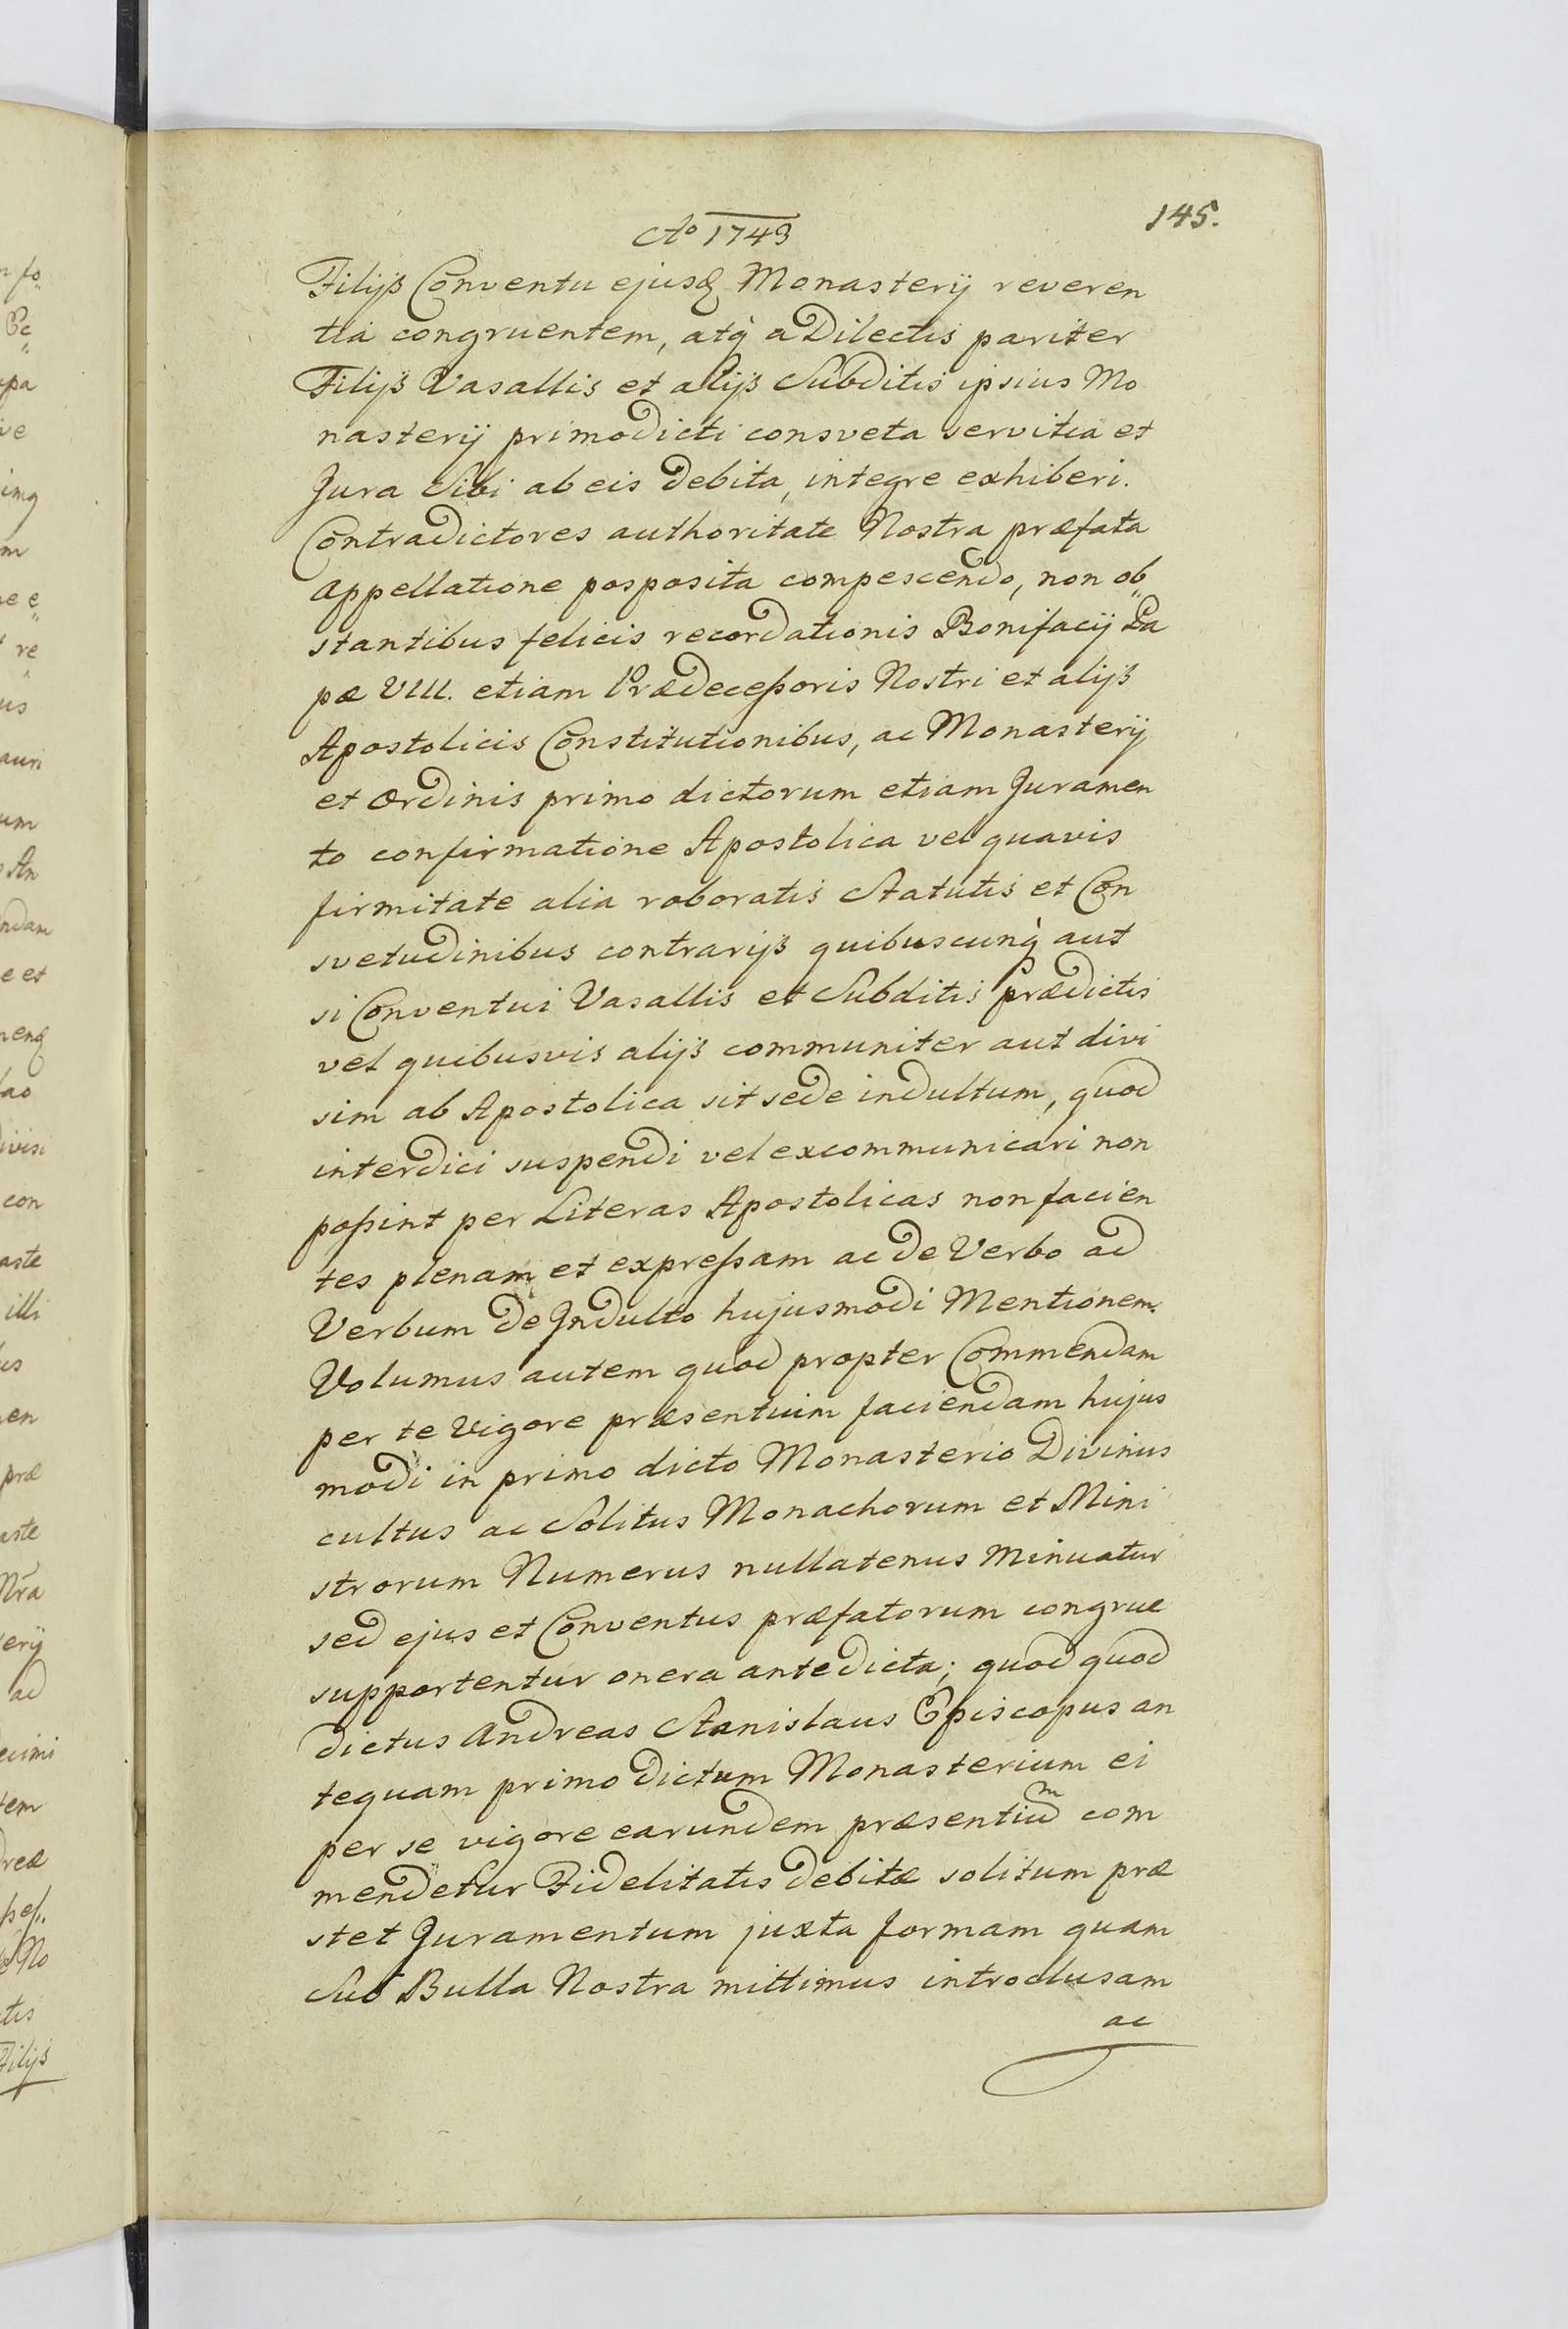 145.
Ao 1743
Filijs Conventu ejusd Monasterij reveren
tia congruentem, atq̀ a Dilectis pariter
Filijs Vasallis et alijs Subditis ipsius Mo
nasterij primodicti consveta servitia et
Jura Sibi ab eis debita, integre exhiberi.
Contradictores authoritate Nostra præfata
appellatione posposita compescendo, non ob„
stantibus felicis recordationis Bonifacij Pa
pæ VIII. etiam Prædeceßoris Nostri et alijs
Apostolicis Constitutionibus, ac Monasterij
et Ordinis primo dictorum etiam Juramen
to confirmatione Apostolica vel quavis
firmitate alia roboratis Statutis et Con
svetudinibus contrarijs quibuscunq̀ aut
si Conventui Vasallis et Subditis prædictis
vel quibusvis alijs communiter aut divi
sim ab Apostolica sit sede indultum, quod
interdici suspendi vel excommunicari non
poßint per Literas Apostolicas non facien
tes plenam et expreßam ac de Verbo ad
Verbum de Indulto hujusmodi Mentionem.
Volumus autem quod propter Commendam
per te Vigore præsentium faciendam hujus
modi in primo dicto Monasterio Divinus
cultus ac Solitus Monachorum et Mini
strorum Numerus nullatenus minuatur
sed ejus et Conventus præfatorum congrue
supportentur onera antedicta; quod quod
dictus Andreas Stanislaus Episcopus an
tequam primo dictum Monasterium ei
per se vigore earundem præsentium com
mendetur Fidelitatis debitæ solitum præ
stet Juramentum juxta formam quam
Sub Bulla Nostra mittimus introclusam
ac